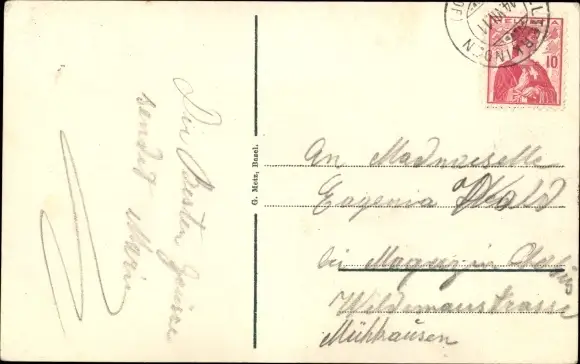 Die Besten Grüsse
sendet Marie
G. Metz, Basel.
HELVETIA
10
An Madmoiselle
Eugenia Wald
bei
Wildemanstrasse
Mühlhausen